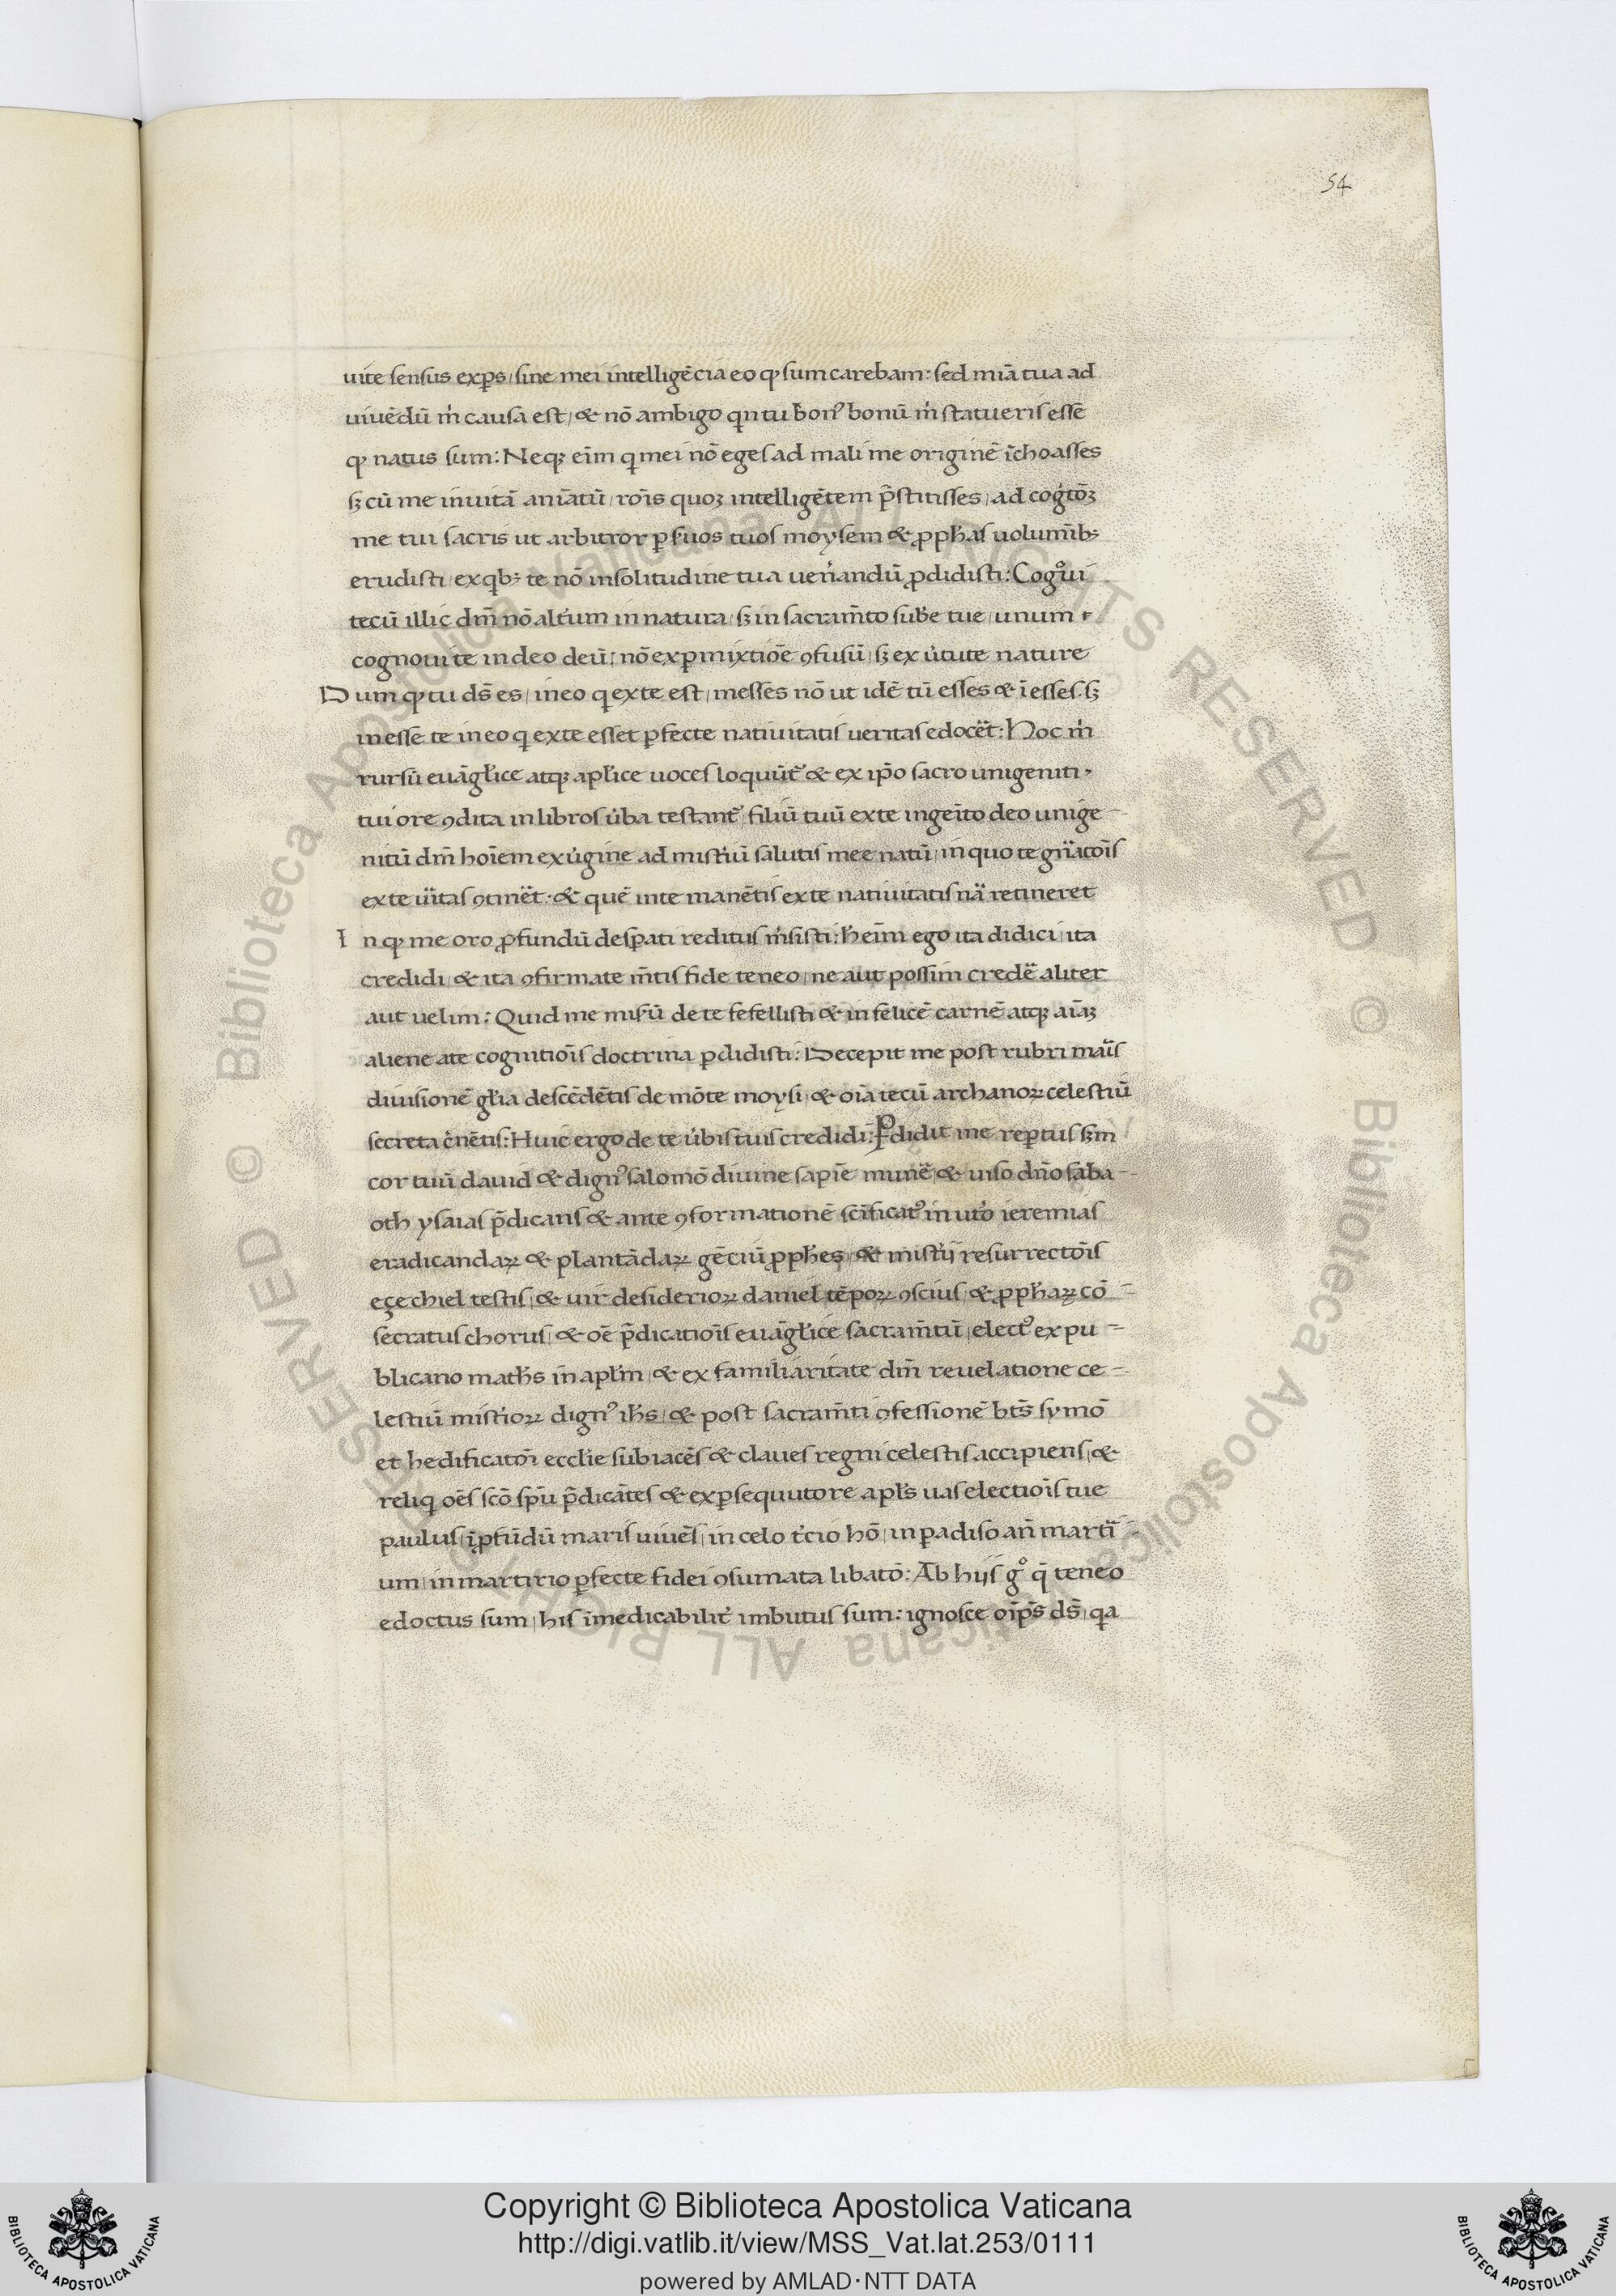 54
uite sensus exꝑs sine mei intelligẽcia eo ꝙ sum carebam: sed miã tua ad
uiuẽdũ m̉ causa est, & nõ ambigo qn tu bonꝰ bonũ m̉ statueris esse
ꝙ natus sum: Neqꝫ eĩm q mei nõ eges ad mali me originẽ ĩchoasses
sꝫ cũ me inuitã aniãtũ rõis quoꝫ intelligẽtem p̃stitisses, ad cogtõꝫ
me tui sacris ut arbitror ꝑ suos tuos moysem & ꝓph̃as uolumĩbꝫ
erudisti, ex qbꝫ te nõ in solitudine tua uen̉andũ ꝓdidisti: Cogͦui
tecũ illic dm̃ nõ alt̉um in natura, sꝫ in sacram̃to sub̉e tue, unum
cognoui te in deo deũ, nõ ex ꝑmixtiõe ꝯfusũ, sꝫ ex u̓tute nature
Dum ꝙ tu ds̃ es, in eo q ex te est, messes nõ ut idẽ tũ esses & ĩesses. sꝫ
inesse te in eo q ex te esset ꝑfecte natiuitatis ueritas edocẽt: Hoc m̉
rursũ euãgl̉ice atqꝫ apl̉ice uoces loquũt̉ & ex ip̃o sacro unigeniti
tui ore ꝯdita in libros u̓ba testant̉ filiũ tuũ ex te ingeĩto deo unige
nitũ dm̃ hoĩem ex u̓gine ad mist̉iũ salutis mee natũ, in quo te gn̉atõis
ex te ũitas ꝯtinẽt. & quẽ in te manẽtis ex te natiuitatis nã retineret
In ꝙ me oro ꝓfundũ desꝑati reditus m̉sisti: h̉ eĩm ego ita didici, ita
credidi, & ita ꝯfirmate m̃tis fide teneo, ne aut possim credẽ aliter
aut uelim: Quid me misũ de te fefellisti & in felicẽ carnẽ atqꝫ aĩaꝫ
aliene a te cognitiõis doctrina ꝑdidisti: Decepit me post rubri maĩs
diuisionẽ gl̉ia descẽdẽtis de mõte moysi, & oĩa tecũ archanoꝝ celestiũ
secreta c̉nẽtis: Huic ergo de te u̓bis tuis credidi: Ꝑdidit me reꝑtus sꝫm
cor tuũ dauid & dignꝰ salomõ diuine sapiẽ munẽ, & uiso dño saba
oth ysaias p̃dicans & ante ꝯformationẽ scĩficatꝰ in ut̉o ieremias
eradicandaꝝ & plantãdaꝝ gẽciũ ꝓph̉es, & mist̉ij resurrectõis
eçechiel testis, & uir desiderioꝝ daniel tẽpoꝝ ꝯscius, & ꝓph̉aꝝ cõ
secratus chorus, & oẽ p̃dicatiõis euãgl̉ice sacram̃tũ, electꝰ ex pu
blicano math̉s in apl̉m, & ex familiaritate dm̃ reuelatione ce
lestiũ mist̉ioꝝ dignꝰ ih̉s, & post sacram̃ti ꝯfessionẽ bt̃s symõ
et hedificatõi eccl̉ie subiacẽs & claues regni celestis accipiens, &
reliq oẽs scõ spũ p̃dicãtes & ex ꝑsequutore apl̉s uas electiõis tue
paulus, ĩ ꝓfũdũ maris uiuẽs, in celo t̉cio hõ, in ꝑadiso añ martĩ
um, in martirio ꝑfecte fidei ꝯsumata libatõ: Ab hijs gͦ q̃ teneo
edoctus sum, his ĩmedicabilit̉ imbutus sum: ignosce oĩps̃ ds̃, qa
Copyright © Biblioteca Apostolica Vaticana
http://digi.vatlib.it/view/MSS_Vat.lat.253/0111
powered by AMLAD·NTT DATA
BIBLIOTECA APOSTOLICA VATICANA
BIBLIOTECA APOSTOLICA VATICANA
© Biblioteca Apostolica Vaticana ALL RIGHTS RESERVED
© Biblioteca Apostolica Vaticana ALL RIGHTS RESERVED